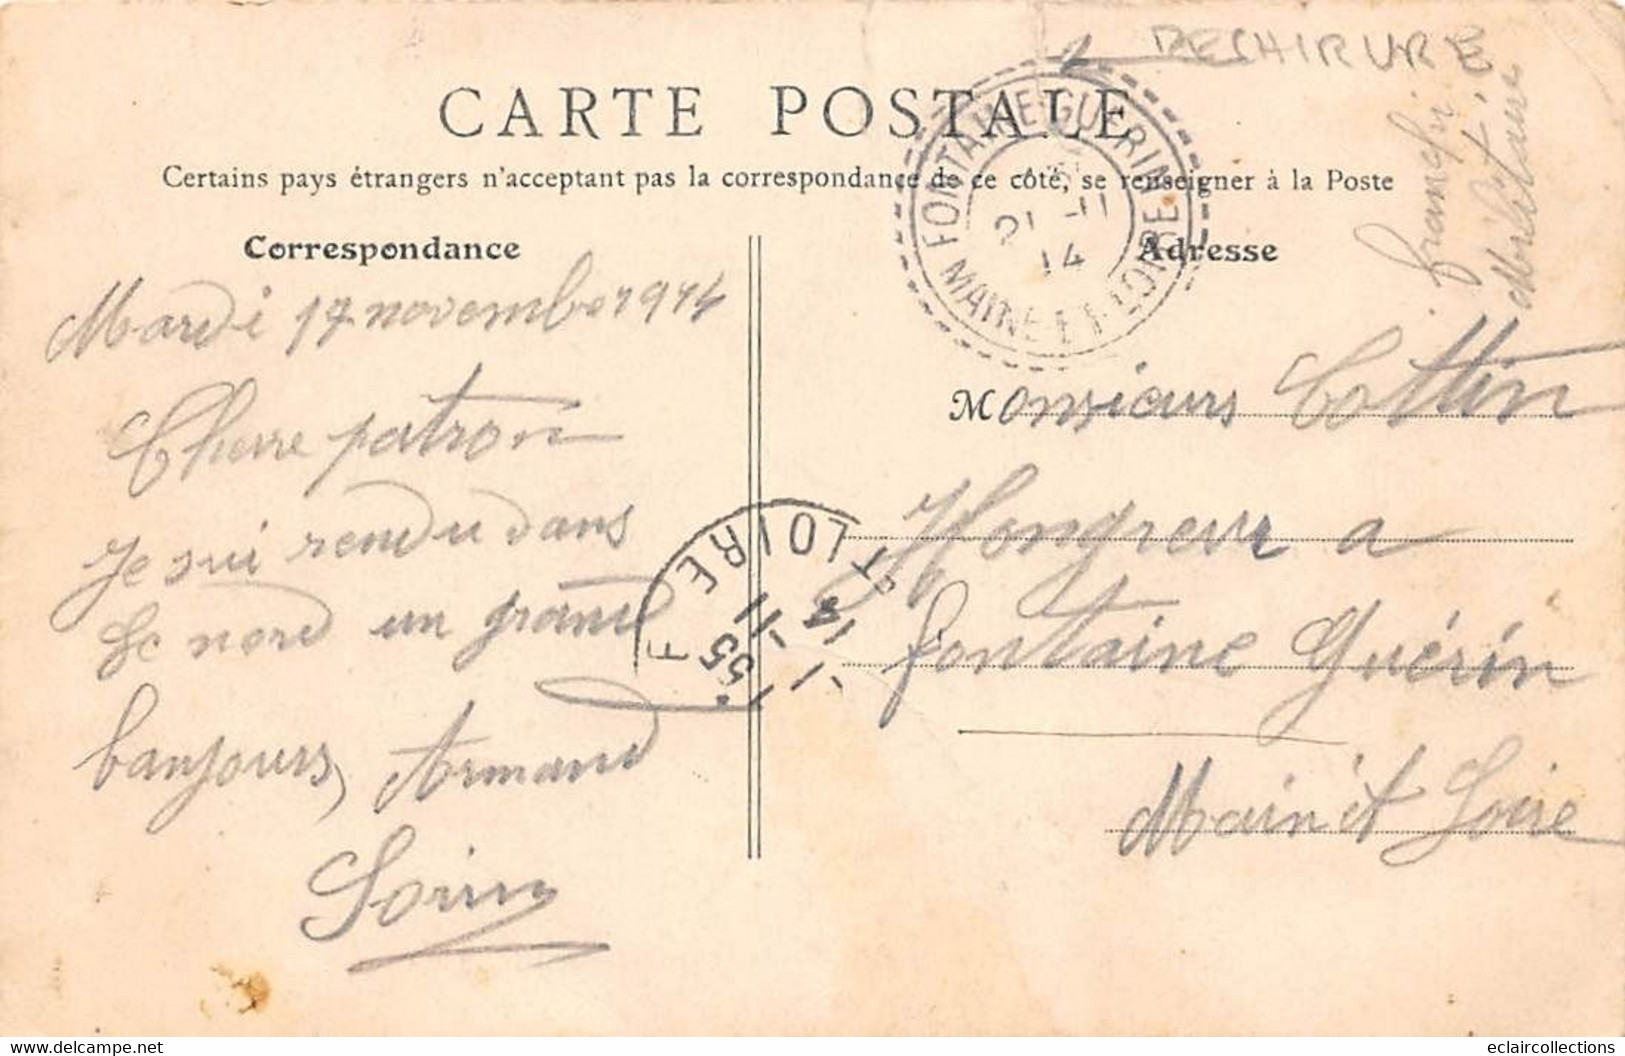 DECHIRURE
CARTE POSTALE
Certains pays étrangers n'acceptant pas la correspondance de ce côté, se renseigner à la Poste
FONTAINE-GUERIN
21-11
14
MAINE-ET-LOIRE
Militaire
Correspondance
Adresse
Mardi 17 novembre 1914
Cherre patron
Je sui rendu dans
Le nord un grand
banjours, Armand
Soriny
Monsieurs Cottin
Hongreur a
fontaine Guérin
Main et Loire
T LOIRE
1-11
14
eclaircollections
www.delcampe.net